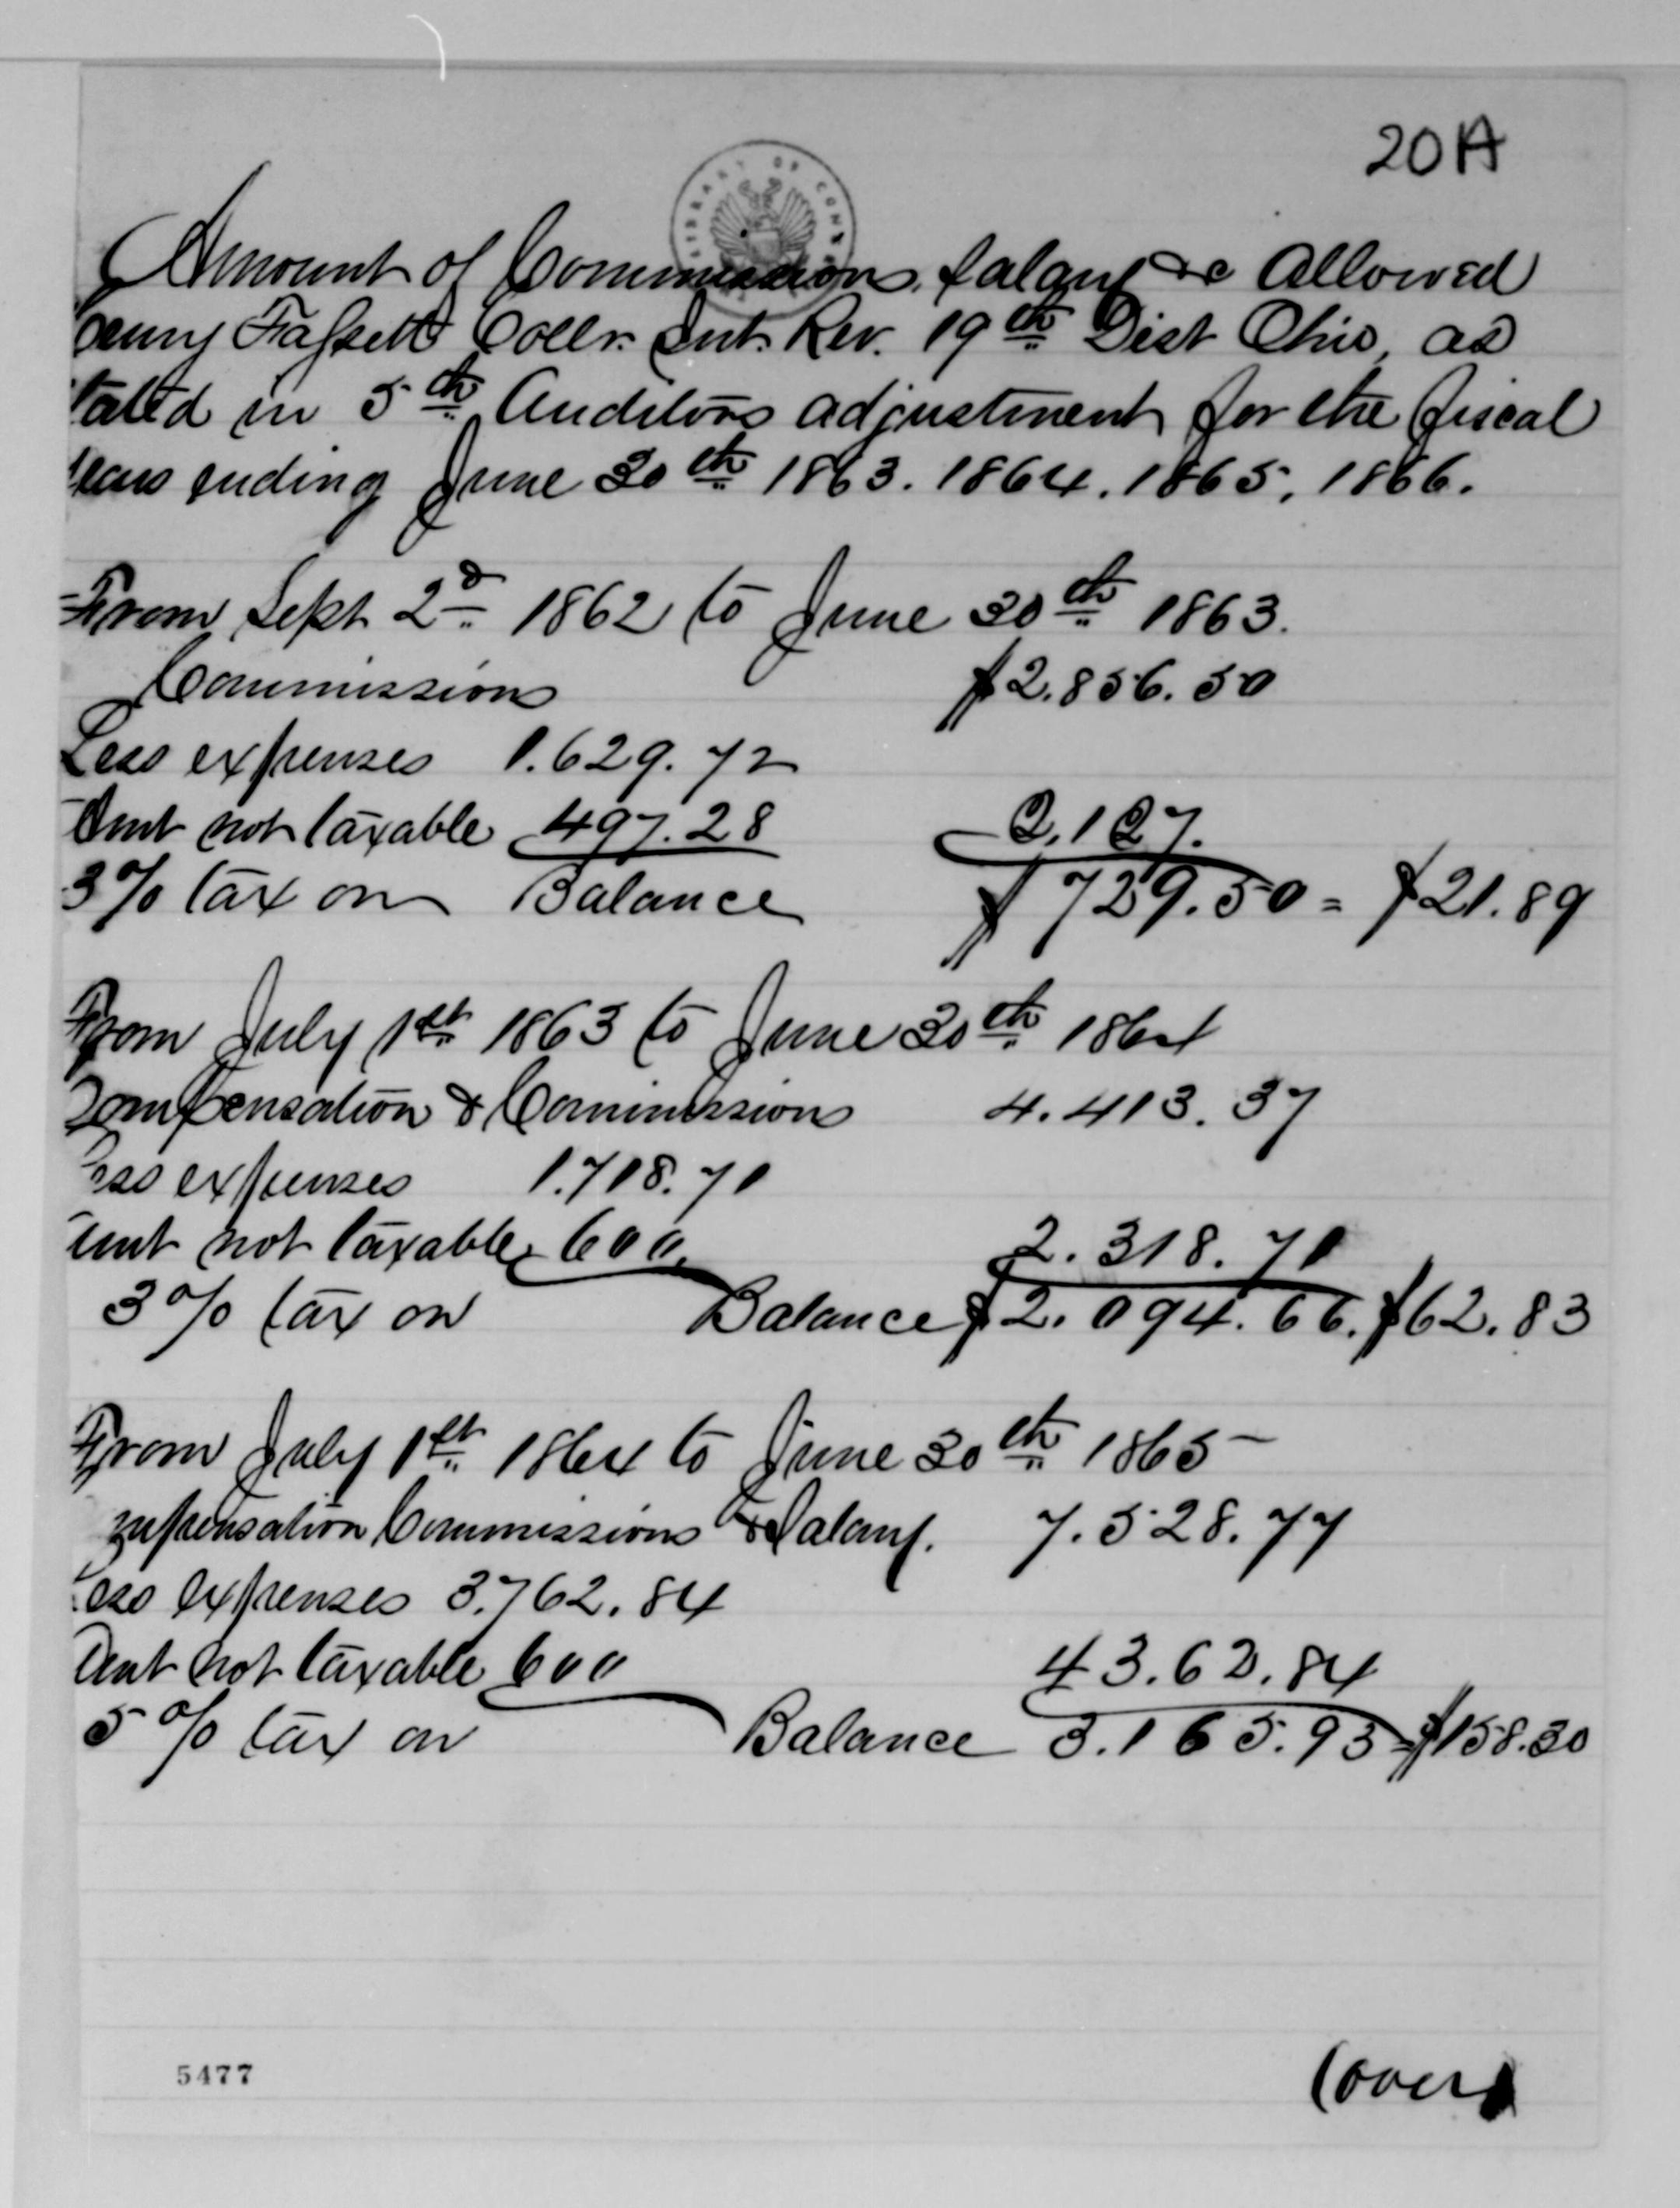 20A
LIBRARY OF CONG
Amount of Commissions, Salary &c Allowed
enry Fassett Collr. Int. Rev. 19th Dist Ohio, as
tated in 5th Auditors adjustment for the fiscal
years ending June 30th 1863. 1864. 1865, 1866.
From Sept 2d 1862 to June 30th 1863.
Commissions $2.856.50
Less expenses 1.629.72
Amt not taxable 497.28 2.127.
3% tax on Balance $729.50 = $21.89
From July 1st 1863 to June 30th 1864
Compensation & Commissions 4.413.37
ess expenses 1.718.71
Amt not taxable 600. 2.318.71
3% tax on Balance $2.094.66. $62.83
From July 1st 1864 to June 30th 1865
ompensation Commissions & Salary. 7.528.77
ess expenses 3.762.84
Amt not taxable 600 43.62.84
5% tax on Balance 3.165.93 = $158.30
5477
(over)